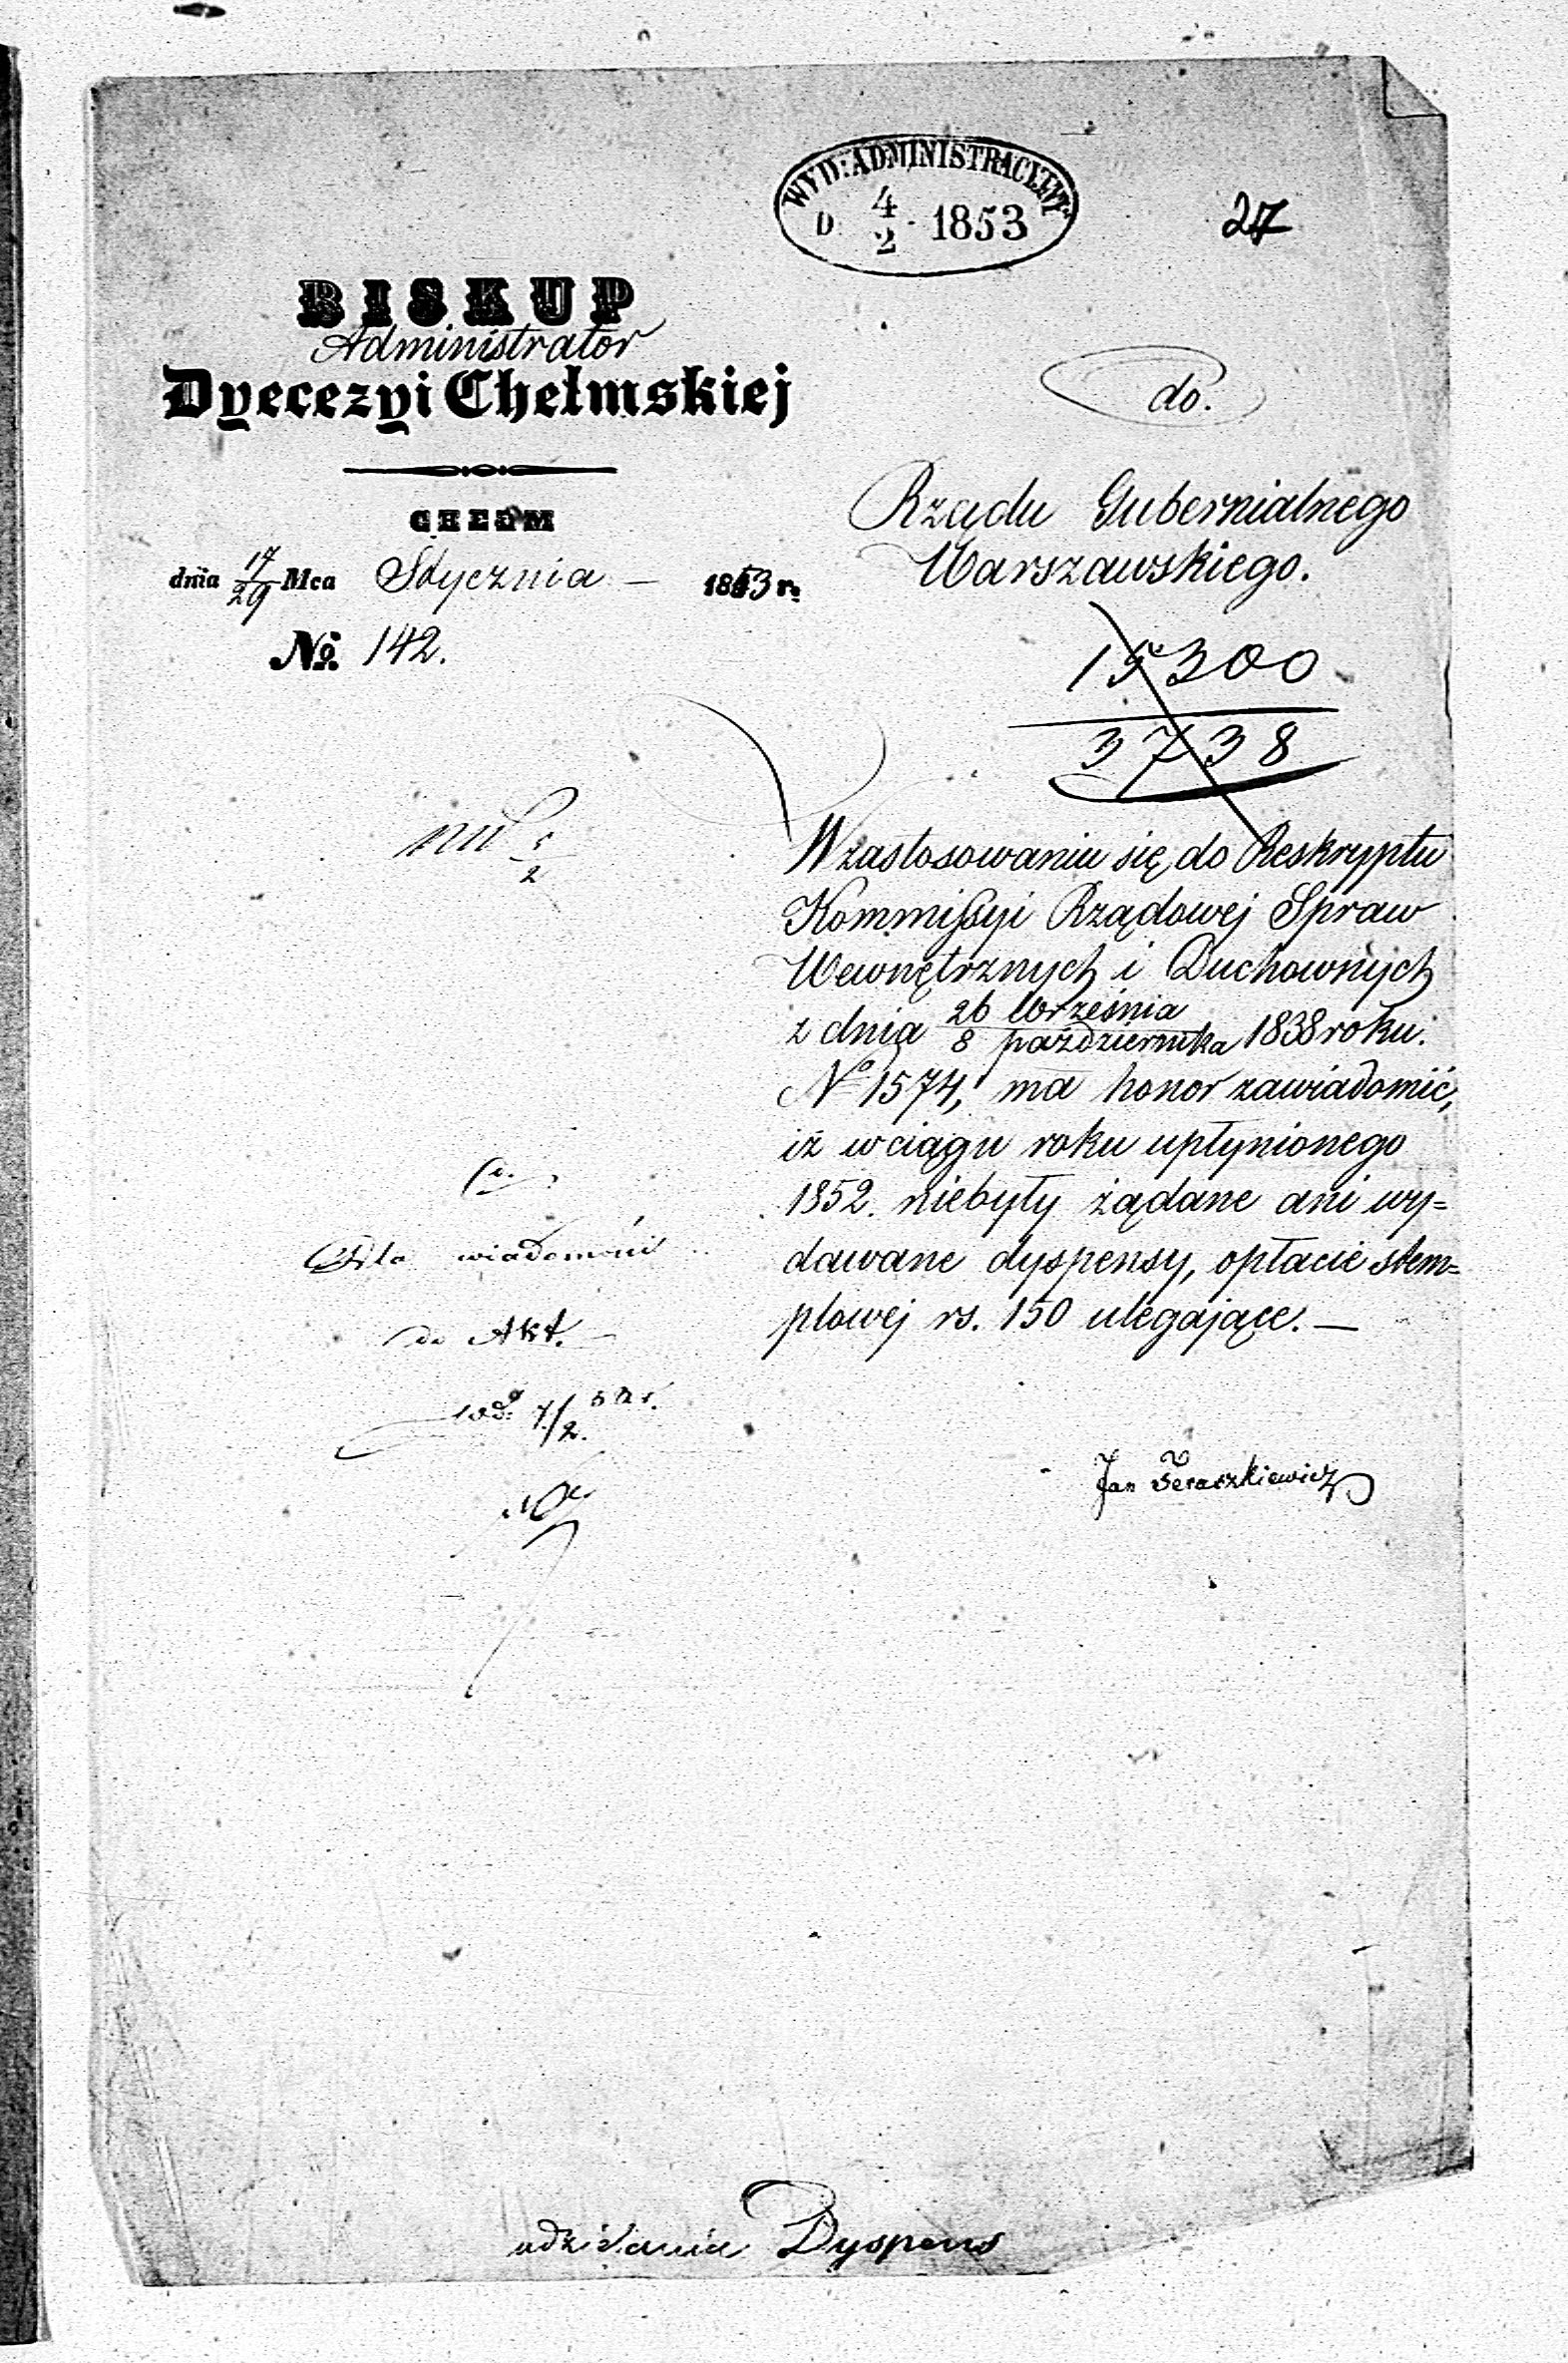 WYD: ADMINISTRACYJNY
D. 4/2 1853
27
BISKUP
Administrator
Dyecezyi Chełmskiej
CHEŁM
dnia 17/29 Mca Stycznia — 1853 r.
No. 142.
do.
Rządu Gubernialnego
Warszawskiego.
15300
3738
W zastosowaniu się do Reskryptu
Kommissyi Rządowej Spraw
Wewnętrznych i Duchownych
z dnia 26 Września / 8 października 1838 roku.
No 1574, ma honor zawiadomić,
iż w ciągu roku upłynionego
1852. niebyły żądane ani wy=
dawane dyspensy, opłacie stem=
plowej rs. 150 ulegające. —
Jan Teraszkiewicz
Dla wiadomości
do Akt. —
7/2
udzielania Dyspens